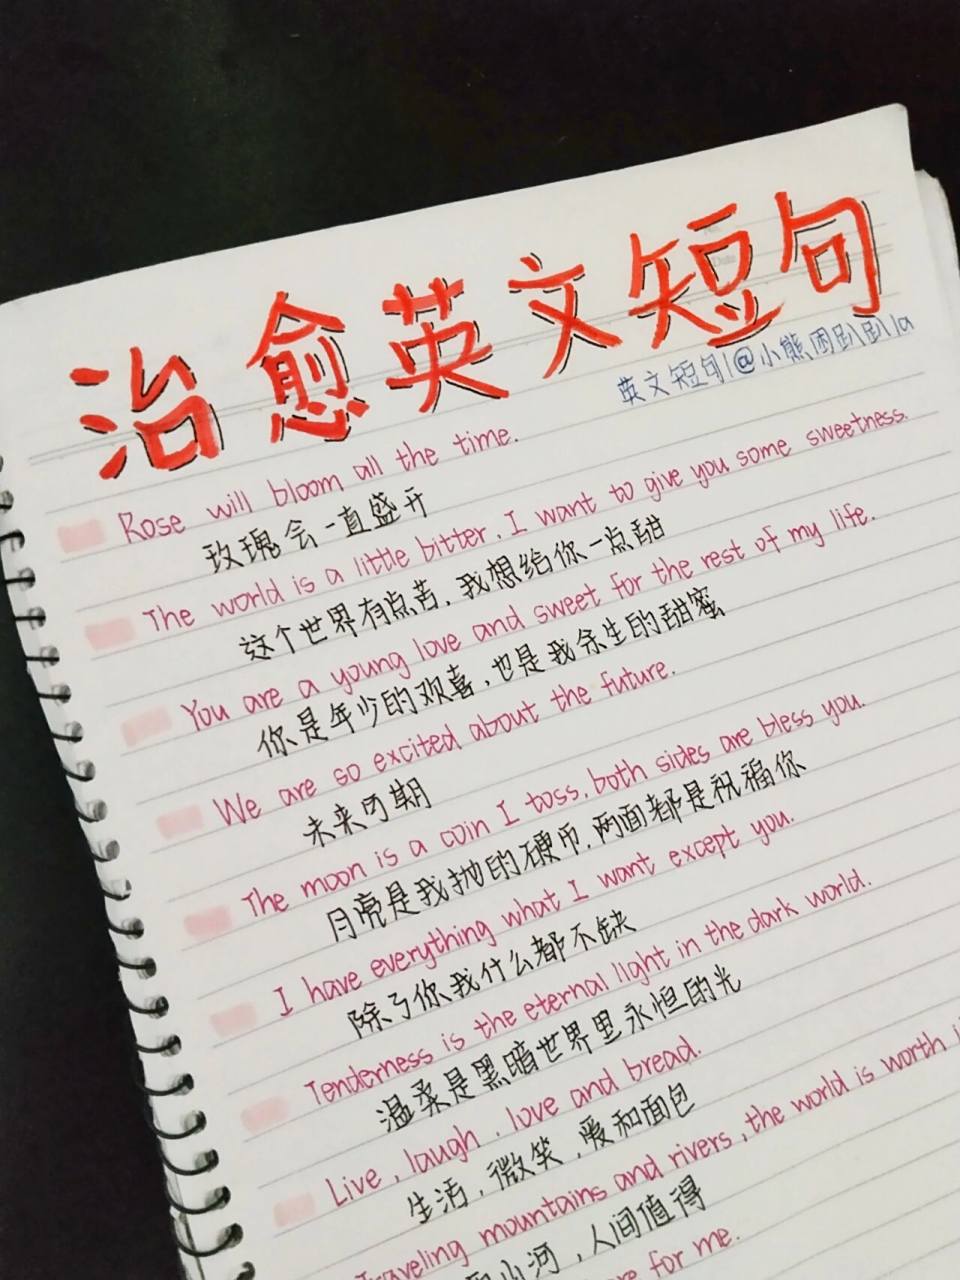 治愈英文短句
英文短句|@小熊困趴趴la
Rose will bloom all the time.
玫瑰会一直盛开
The world is a little bitter. I want to give you some sweetness.
这个世界有点苦，我想给你一点甜
You are a young love and sweet for the rest of my life.
你是年少的欢喜，也是我余生的甜蜜
We are so excited about the future.
未来可期
The moon is a coin I toss, both sides are bless you.
月亮是我抛的硬币，两面都是祝福你
I have everything what I want except you.
除了你我什么都不缺
Tenderness is the eternal light in the dark world.
温柔是黑暗世界里永恒的光
Live, laugh, love and bread.
生活，微笑，爱和面包
Traveling mountains and rivers, the world is worth
小河，人间值得
for me.